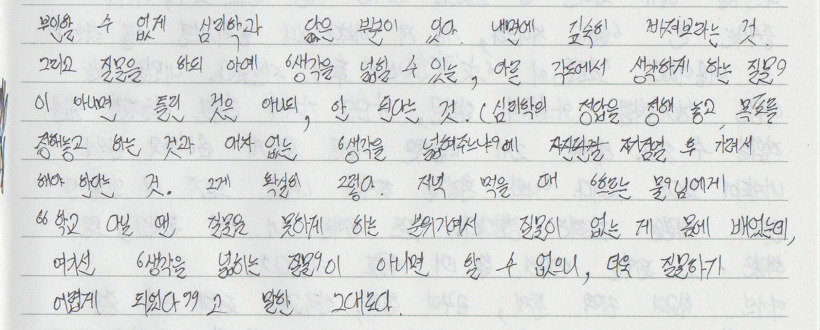 부인할 수 없게 심리학과 닮은 부분이 있다. 내면에 깊숙히 빠져보라는 것.
그리고 질문을 하되 아예 '생각을 넓힐 수 있는, 다른 각도에서 생각하게 하는 질문'
이 아니면 틀린 것은 아니되, 안 된다는 것. (심리학의 정답을 정해 놓고, 목표를
정해놓고 하는 것과 여차 없는 '생각을 넓혀주느냐'에 자진단할 저검열 후 가려서
해야 한다는 것. 그게 확실히 그렇다. 저녁 먹을 때 '흐르는 물'님에게
"학교 다닐 땐 질문을 못하게 하는 분위기여서 질문이 없는 게 몸에 배었는데,
여기선 '생각을 넓히는 질문'이 아니면 할 수 없으니, 더욱 질문하기
어렵게 되었다"고 말한 그대로다.